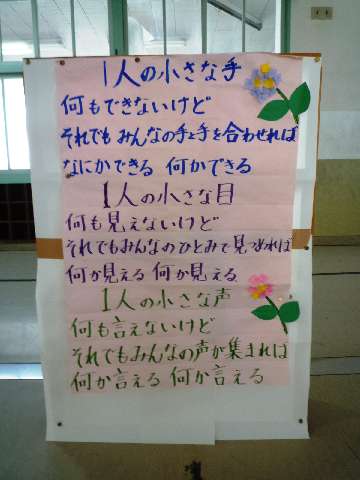 1人の小さな手
何もできないけど
それでもみんなの手と手を合わせれば
なにかできる 何かできる
1人の小さな目
何も見えないけど
それでもみんなのひとみで見つめれば
何か見える 何か見える
1人の小さな声
何も言えないけど
それでもみんなの声が集まれば
何か言える 何か言える